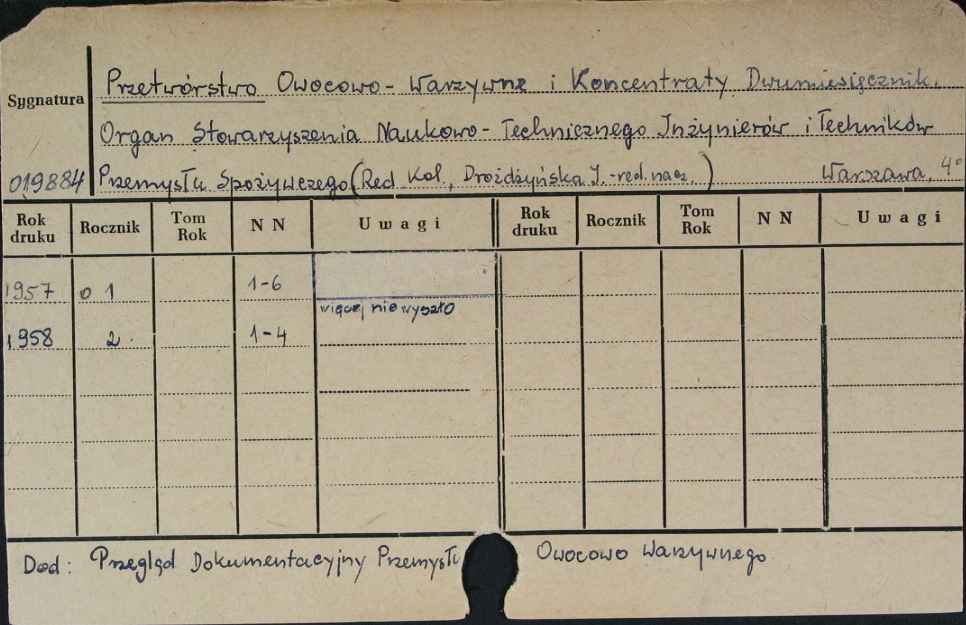 Przetwórstwo Owocowo-Warzywne i Koncentraty Dwumiesięcznik.
Sygnatura
Organ Stowarzyszenia Naukowo-Technicznego Inżynierów i Techników
019884 Przemysłu Spożywczego (Red. Kol., Drożdżyńska J.-red. nacz.) Warszawa, 4°
Rok druku Rocznik Tom Rok NN Uwagi Rok druku Rocznik Tom Rok NN Uwagi
1957 o 1 1-6
więcej nie wyszło
1958 2. 1-4
Dod: Przegląd Dokumentacyjny Przemysłu Owocowo Warzywnego